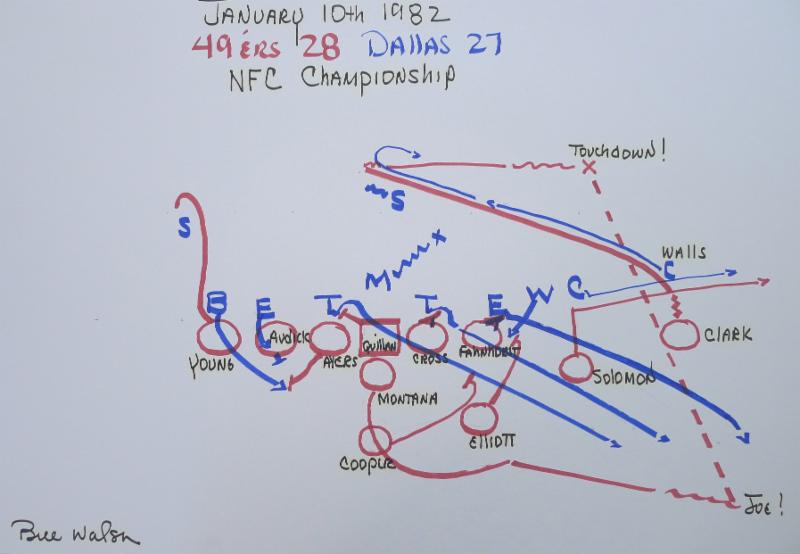 JANUARY 10TH 1982
49'ERS 28 DALLAS 27
NFC CHAMPIONSHIP
TOUCHDOWN!
X
S
S
M
X
WALLS
C
C
B
E
T
T
E
W
YOUNG
AUDICK
AYERS
QUILLAN
CROSS
FAHNHORST
CLARK
SOLOMON
MONTANA
ELLIOTT
COOPER
JOE!
Bill Walsh